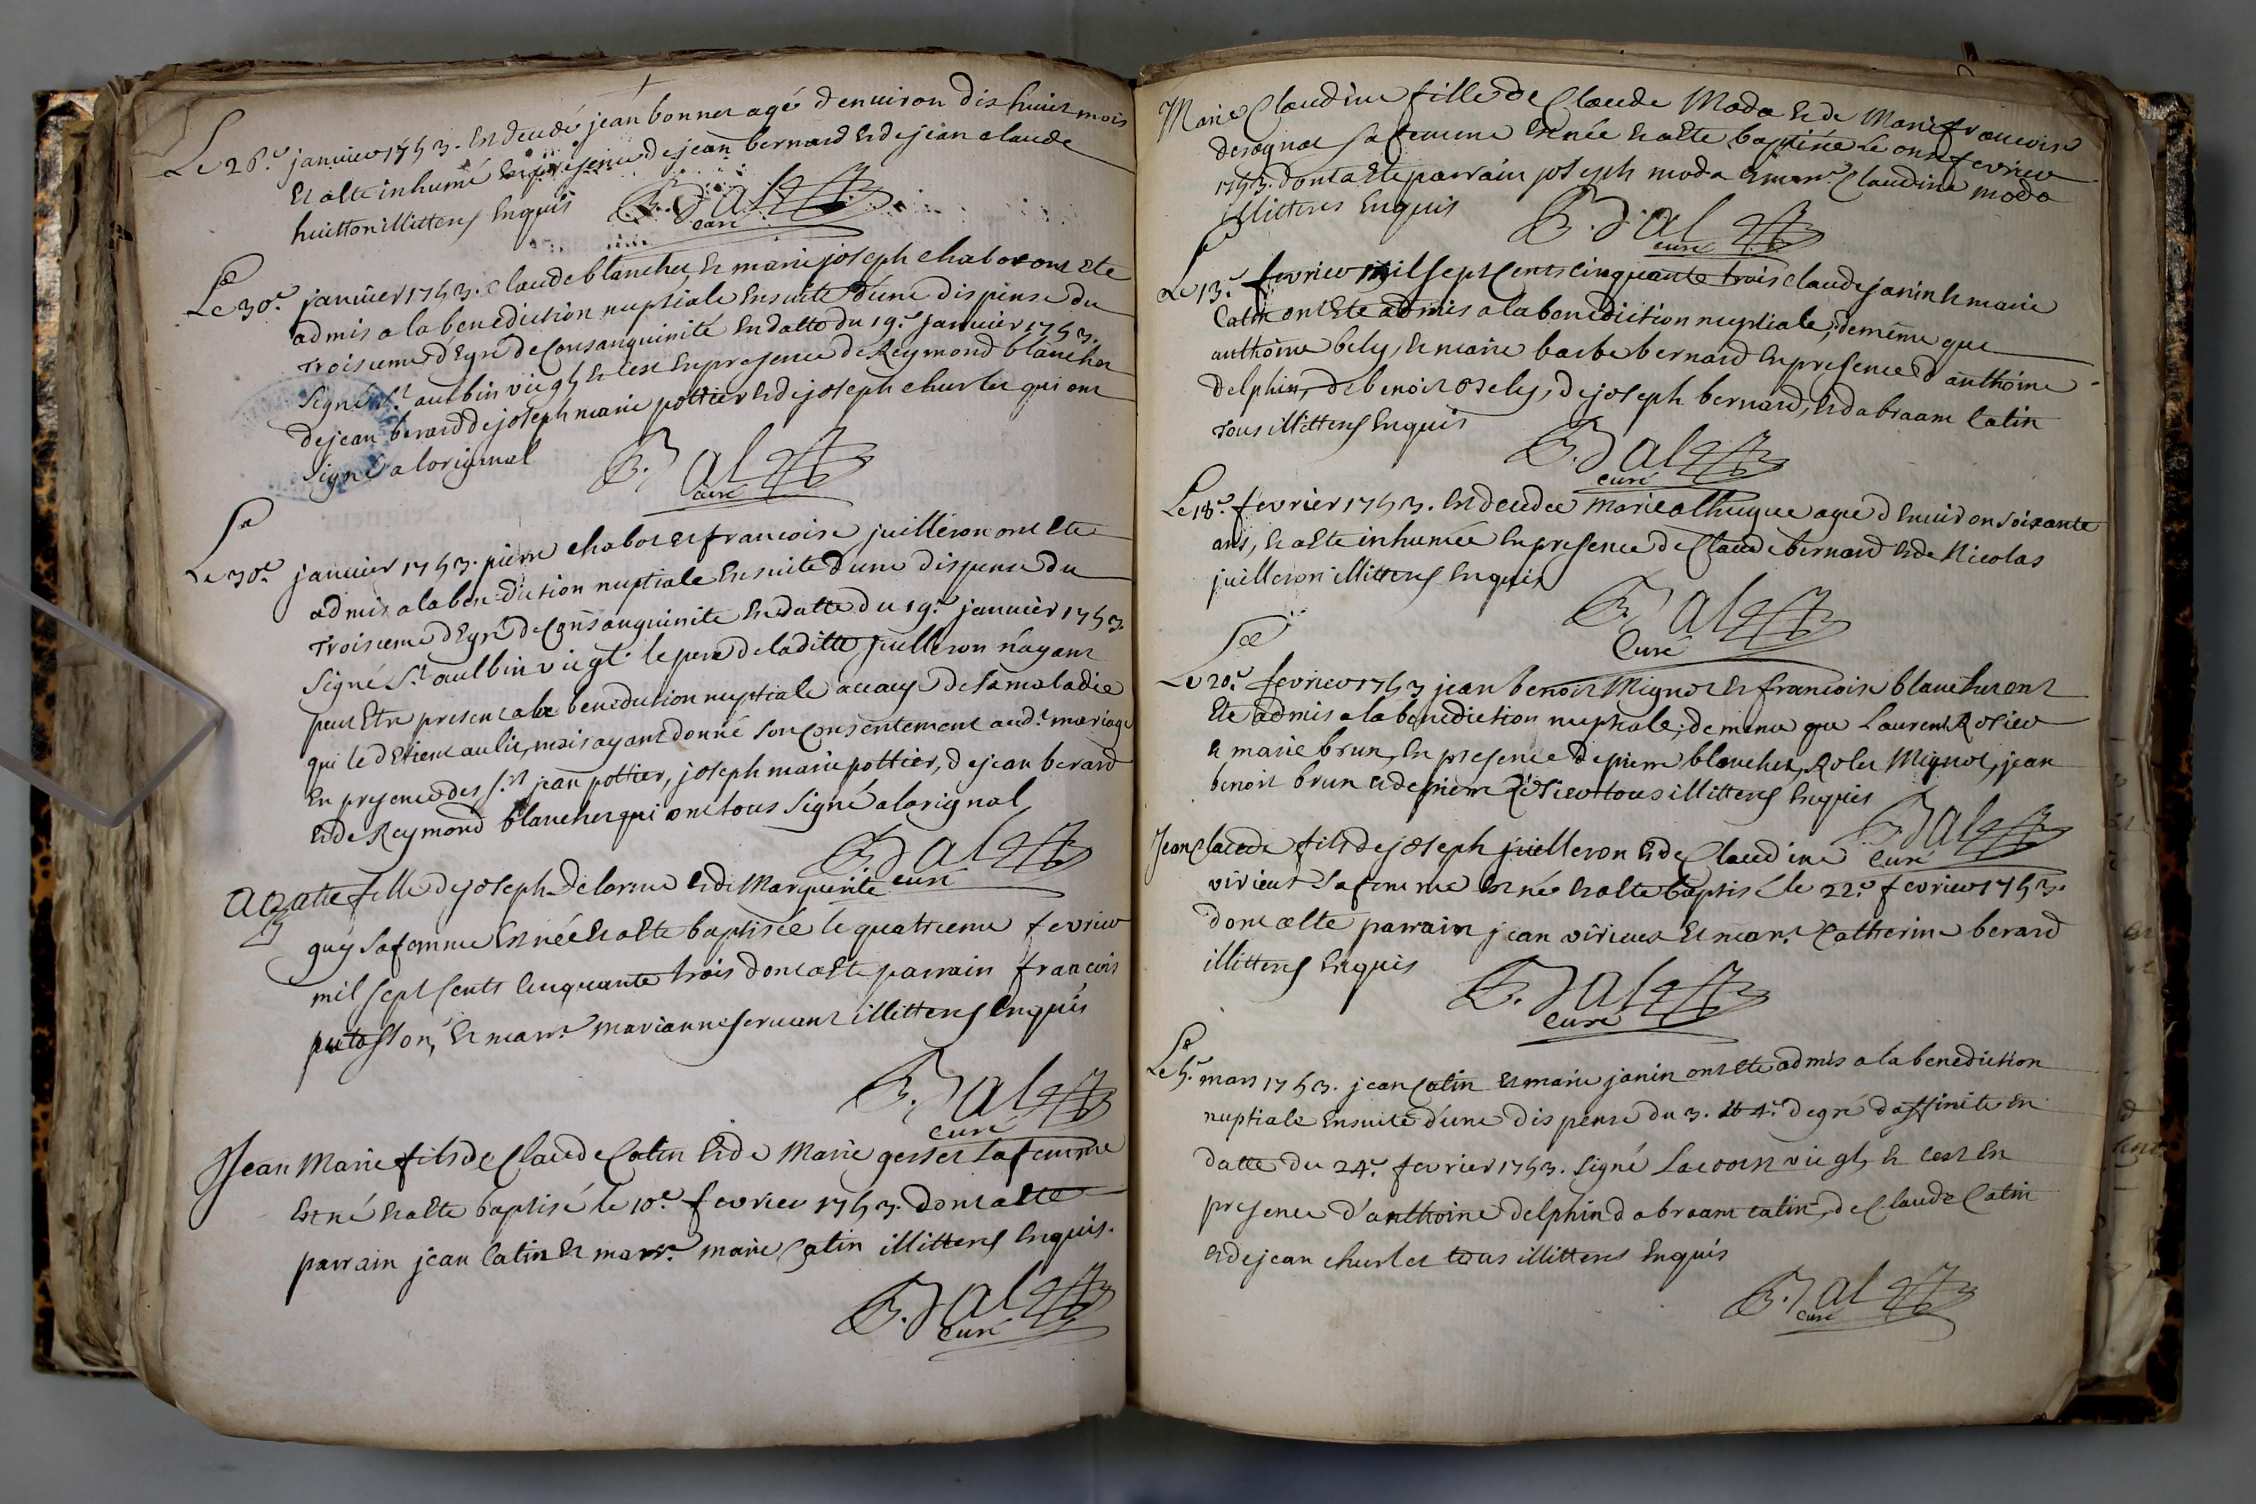 Le 26.e janvier 1753. Est decedé jean bonnet agé denviron dix huict mois
Et a Eté inhumé En presence de jean bernard Et de jean claude
huitton illitterés Enquis B. Dal
curé
Le 30.e janvier 1753. claude blanchet Et marie joseph chabot ont Eté
admis a la benediction nuptiale Ensuite d'une dispense du
troisieme dEgré de Consanguinité En datte du 19.e janvier 1753.
signé St. aulbin vic gl. Et c'est En presence de Reymond blanchet
de jean berard de joseph marie pottier Et de joseph churlet qui ont
signé a loriginal B. Dal
curé
Le 30.e janvier 1753. pierre chabot Et francoise juilleron ont Eté
admis a la benediction nuptiale Ensuite d'une dispense du
troisieme dEgré de Consanguinité En datte du 19.e janvier 1753.
signé St. aulbin vic gl. le pere de laditte juilleron n'ayant
peut Etre present a la benediction nuptiale a cause de sa maladie
qui le dEtient au lit, mais ayant donné son Consentement aud.t mariage
En presence des s.rs jean pottier, joseph marie pottier, de jean berard
Et de Reymond blanchet qui ont tous signé a loriginal
B. Dal
curé
Agathe fille de joseph Delorme Et de Marguerite
guy sa femme Est née Et a Eté baptisée le quatrieme fevrier
mil sept Cents Cinquante trois dont a Eté parrain francois
putosson, Et marr.e marianne servant illitterés Enquis
B. Dal
curé
Jean Marie fils de Claude Catin Et de Marie gesset sa femme
Est né Et a Eté baptisé le 10.e fevrier 1753. dont a Eté
parrain jean Catin Et marr.e marie Catin illitterés Enquis.
B. Dal
curé
Marie Claudine fille de Claude Moda Et de Marie francoise
sa femme Est née Et a Eté baptisée Le onze fevrier
1753. dont a Eté parrain joseph moda Et marr.e Claudine moda
illitteres Enquis B. Dal
curé
Le 13.e fevrier mil sept Cents Cinquante trois claude janin Et marie
Catin ont Eté admis a la benediction nuptiale, de même que
anthoine bely, Et marie barbe bernard En presence d'anthoine
delphin, de benoit bely, de joseph bernard, Et d abraam Catin
tous illitterés Enquis B. Dal
curé
Le 18.e fevrier 1753. Est decedée Marie agée d Environ soixante
ans, Et a Eté inhumée En presence de Claude bernard Et de Nicolas
juilleron illitterés Enquis B. Dal
Curé
Le 20.e fevrier 1753 jean benoit Mignot Et francoise blanchet ont
Eté admis a la benediction nuptiale, de meme que Laurent Rosier
Et marie brun, En presence de pierre blanchet, Rolet Mignot, jean
benoit brun Et de pierre Rosier tous illitterés Enquis
B. Dal
curé
Jean Claude fils de joseph juilleron Et de Claudine
virieux sa femme Est né Et a Eté baptisé le 22.e fevrier 1753.
dont a Eté parrain jean virieux Et marr.e Catherine berard
illitterés Enquis B. Dal
curé
Le 5.e mars 1753. jean Catin Et marie janin ont Eté admis a la benediction
nuptiale Ensuite d'une dispense du 3. Et 4.e degré daffinité En
datte du 24.e fevrier 1753. signé Lacoin vic gl, Et cest En
presence d'anthoine delphin d abraam catin, de Claude Catin
Et de jean churlet tous illitteres Enquis
B. Dal
curé